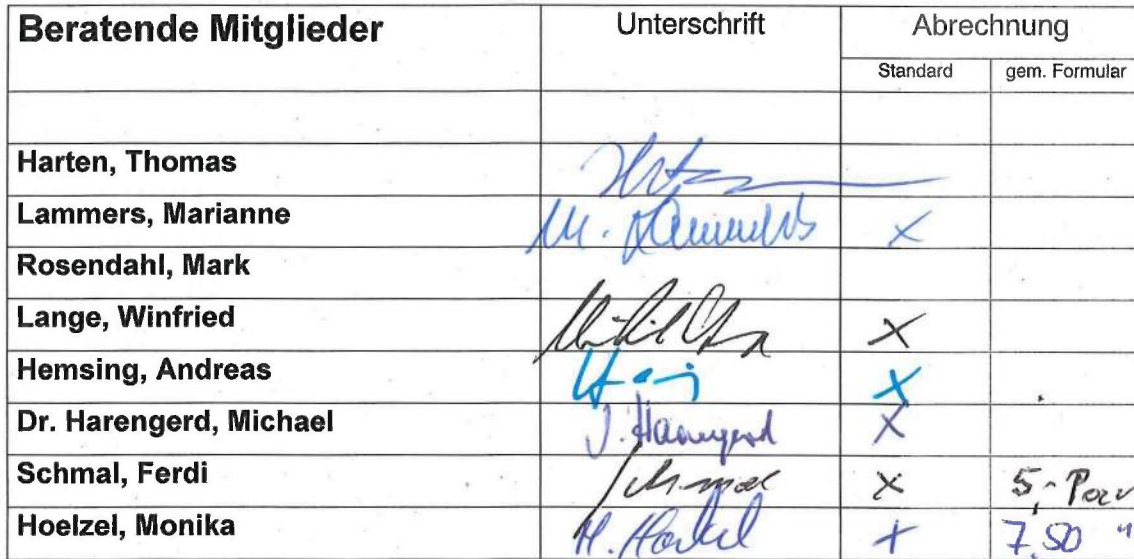 Beratende Mitglieder Unterschrift Abrechnung
Standard gem. Formular
Harten, Thomas
Lammers, Marianne M. Lammers X
Rosendahl, Mark
Lange, Winfried X
Hemsing, Andreas X
Dr. Harengerd, Michael J. Harengerd X
Schmal, Ferdi Schmal X 5,-
Hoelzel, Monika M. Hoelzel + 7,50 "